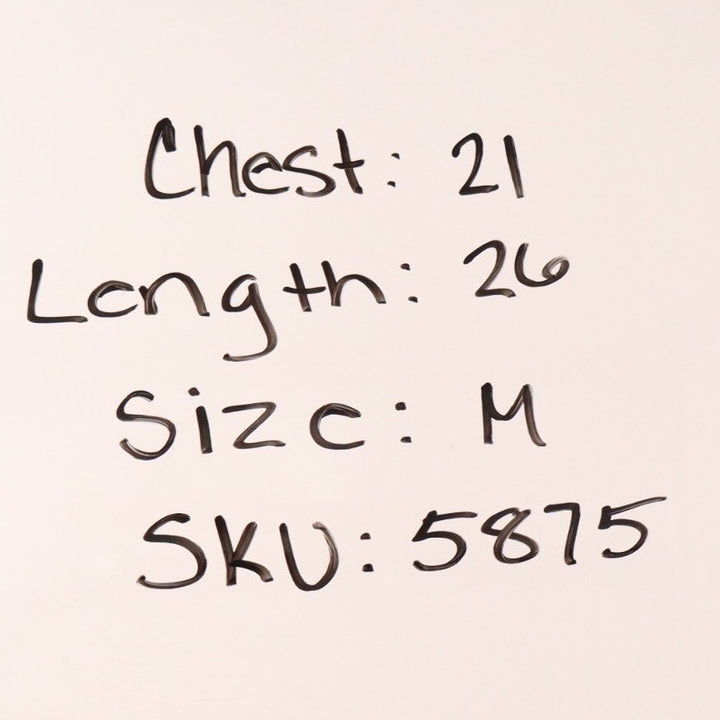 Chest: 21
Length: 26
Size: M
SKU: 5875